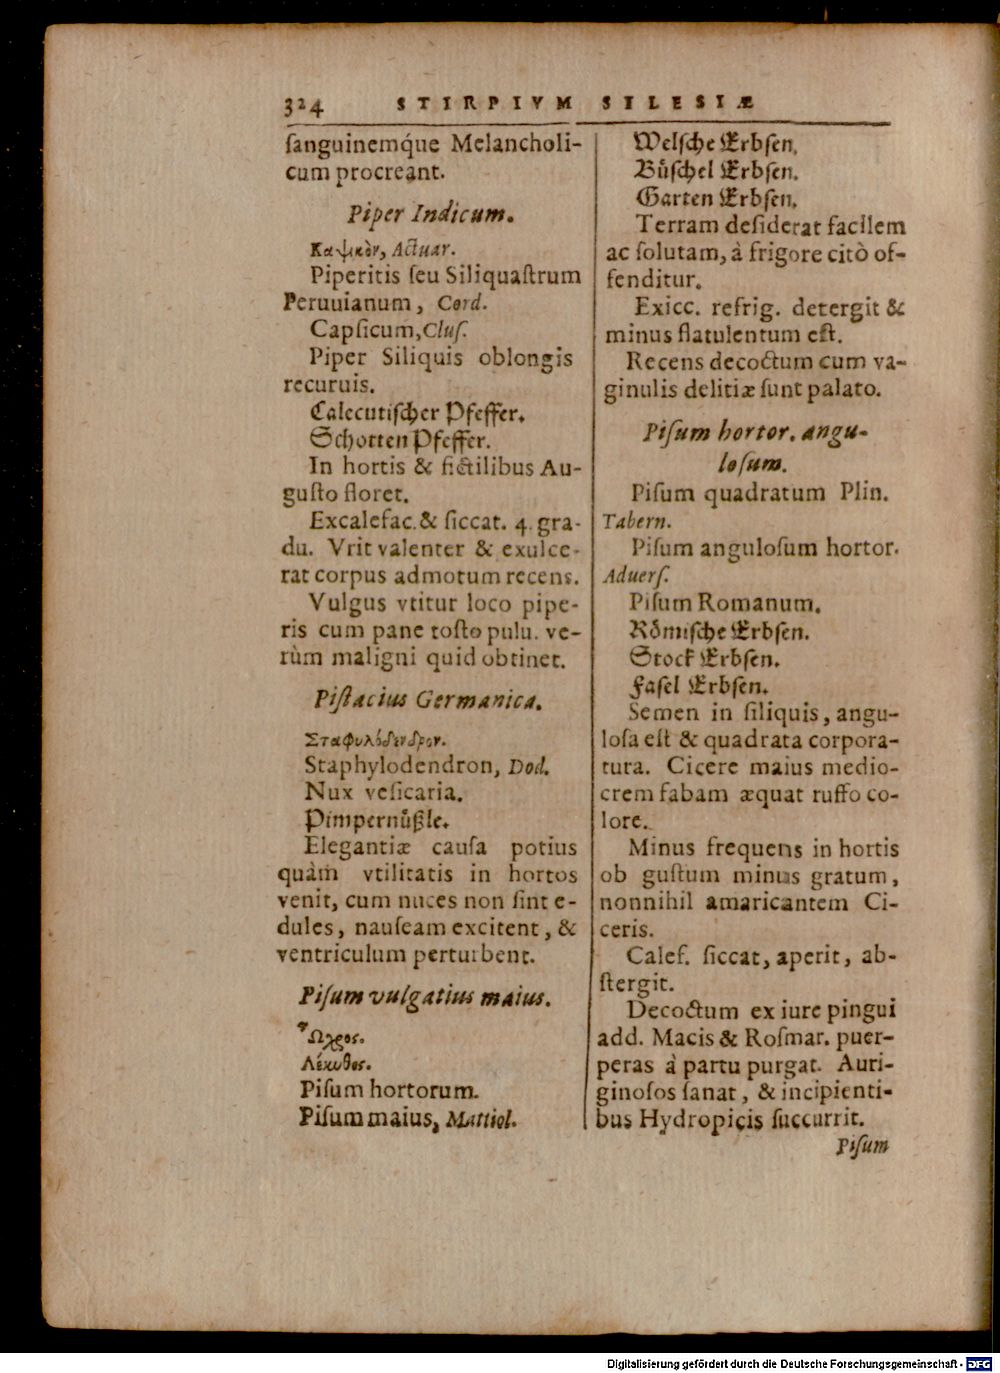 324 STIRPIVM SILESIÆ
ſanguinemq́ue Melancholi-
cum procreant.
Piper Indicum.
Καψικὸν, Actuar.
Piperitis ſeu Siliquaſtrum
Peruuianum, Cord.
Capſicum, Cluſ.
Piper Siliquis oblongis
recuruis.
Calecutiſcher Pfeffer.
Schotten Pfeffer.
In hortis & fictilibus Au-
guſto floret.
Excalefac. & ſiccat. 4. gra-
du. Vrit valenter & exulce-
rat corpus admotum recens.
Vulgus vtitur loco pipe-
ris cum pane toſto pulu. ve-
rùm maligni quid obtinet.
Piſtacius Germanica.
Σταφυλόδενδρον.
Staphylodendron, Dod.
Nux veſicaria.
Pimpernuͤßle.
Elegantiæ cauſa potius
quàm vtilitatis in hortos
venit, cum nuces non ſint e-
dules, nauſeam excitent, &
ventriculum perturbent.
Piſum vulgatius maius.
Ὦχρος.
Λέκυθος.
Piſum hortorum.
Piſum maius, Mattiol.
Welſche Erbſen.
Buͤſchel Erbſen.
Garten Erbſen.
Terram deſiderat facilem
ac ſolutam, à frigore citò of-
fenditur.
Exicc. refrig. detergit &
minus flatulentum eſt.
Recens decoctum cum va-
ginulis delitiæ ſunt palato.
Piſum hortor. angu-
loſum.
Piſum quadratum Plin.
Tabern.
Piſum anguloſum hortor.
Aduerſ.
Piſum Romanum.
Roͤmiſche Erbſen.
Stock Erbſen.
Faſel Erbſen.
Semen in ſiliquis, angu-
loſa eſt & quadrata corpora-
tura. Cicere maius medio-
crem fabam æquat ruffo co-
lore.
Minus frequens in hortis
ob guſtum minus gratum,
nonnihil amaricantem Ci-
ceris.
Calef. ſiccat, aperit, ab-
ſtergit.
Decoctum ex iure pingui
add. Macis & Roſmar. puer-
peras à partu purgat. Auri-
ginoſos ſanat, & incipienti-
bus Hydropicis ſuccurrit.
Piſum
Digitalisierung gefördert durch die Deutsche Forschungsgemeinschaft - DFG